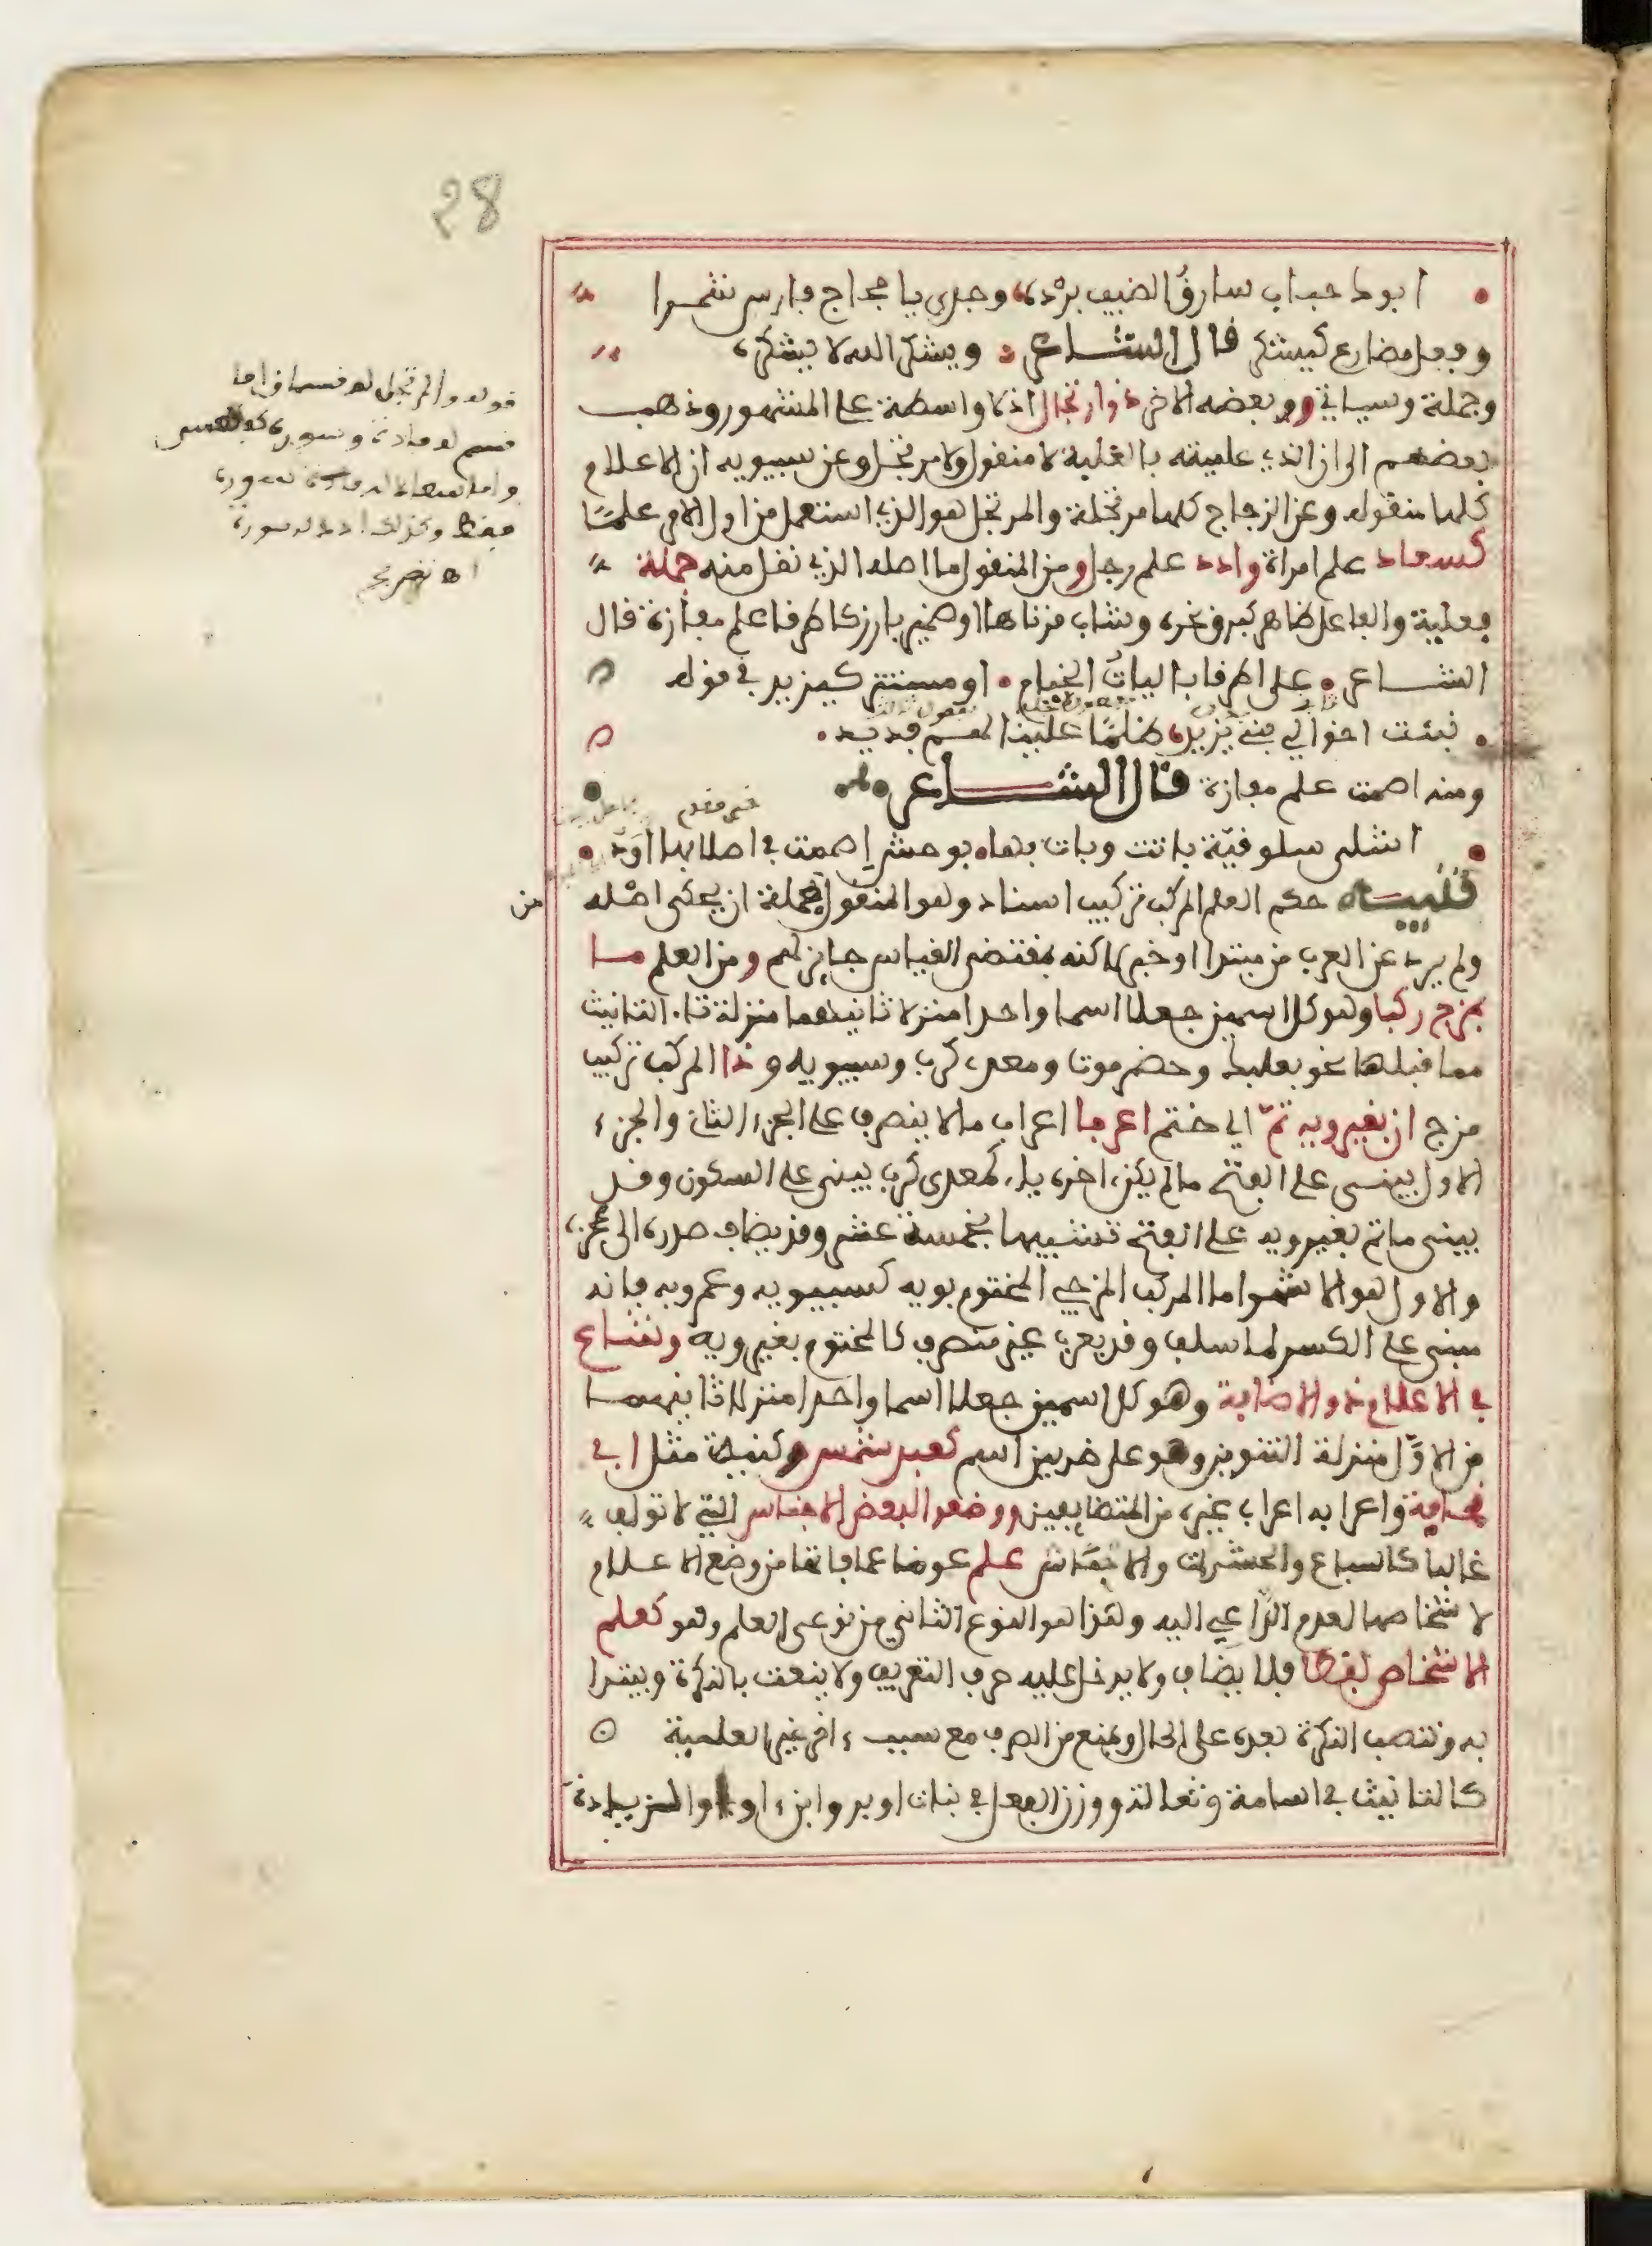 28
ابوك حباب سارق الضيف برده وجدي يا حجاج فارس شمرا
وفعل مضارع كيشكر قال الشاعر ويشكر الله لا يشكره
وجملة وسياتي وبعضه الاخر ذو ارتجال اذ لا واسطة على المشهور وذهب
بعضهم الى ان الذي علميته بالغلبة لا منقول ولا مرتجل وعن سيبويه ان الاعلام
كلها منقولة وعن الزجاج كلها مرتجلة والمرتجل هو الذي استعمل من اول الامر علما
كسعاد علم امراة وادد علم رجل ومن المنقول ما اصله الذي نقل منه جملة
فعلية والفاعل ظاهر كبرق نحره وشاب قرناها او ضمير بارز كاطرقا علم مفازة قال
الشاعر على اطرقا باليات الخيام او مستتر كيزيد في قوله
نبئت اخوالي بني يزيد ظلما علينا لهم فديد
ومنه اصمت علم مفازة قال الشاعر
اشلى سلوقية باتت وبات بها بوحش اصمت في اصلابها اود
تنبيه حكم العلم المركب تركيب اسناد وهو المنقول من جملة ان يحكى اصله
ولم يرد عن العرب من مبتدا وخبر لكنه بمقتضى القياس جايز لهم ومن العلم ما
بمزج ركبا وهو كل اسمين جعلا اسما واحدا منزلا ثانيهما منزلة تاء التانيث
مما قبلها نحو بعلبك وحضرموت ومعدي كرب وسيبويه وذا المركب تركيب
مزج ان بغير ويه تم اي ختم اعربا اعراب ما لا ينصرف على الجزء الثاني والجزء
الاول يبنى على الفتح ما لم يكن اخره ياء كمعدي كرب يبنى على السكون وقد
يبنى ما تم بغير ويه على الفتح تشبيها بخمسة عشر وقد يضاف صدره الى عجزه
والاول هو الاشهر اما المركب المزجي المختوم بويه كسيبويه وعمرويه فانه
مبني على الكسر لما سلف وقد يعرب غير منصرف كالمختوم بغير ويه وشاع
في الاعلام ذو الاضافة وهو كل اسمين جعلا اسما واحدا منزلا ثانيهما
من الاول منزلة التنوين وهو على ضربين اسم كعبد شمس وكنية مثل ابي
قحافة واعرابه اعراب غيره من المتضايفين ووضعوا لبعض الاجناس التي لا تولف
غالبا كالسباع والحشرات والاجناس علم عوضا عما فاتها من وضع الاعلام
لاشخاصها لعدم الداعي اليه وهذا هو النوع الثاني من نوعي العلم وهو كعلم
الاشخاص لفظا فلا يضاف ولا يدخل عليه حرف التعريف ولا ينعت بالنكرة ويبتدا
به وتنصب النكرة بعده على الحال ويمنع من الصرف مع سبب اخر غير العلمية
كالتانيث في اسامة وثعالة ووزن الفعل في بنات اوبر وابن اوى والزيادة
قوله والمرتجل له قسمان اما
قسم له مادة وصورة
فقط وكذلك ادد له صورة
اه تصريح